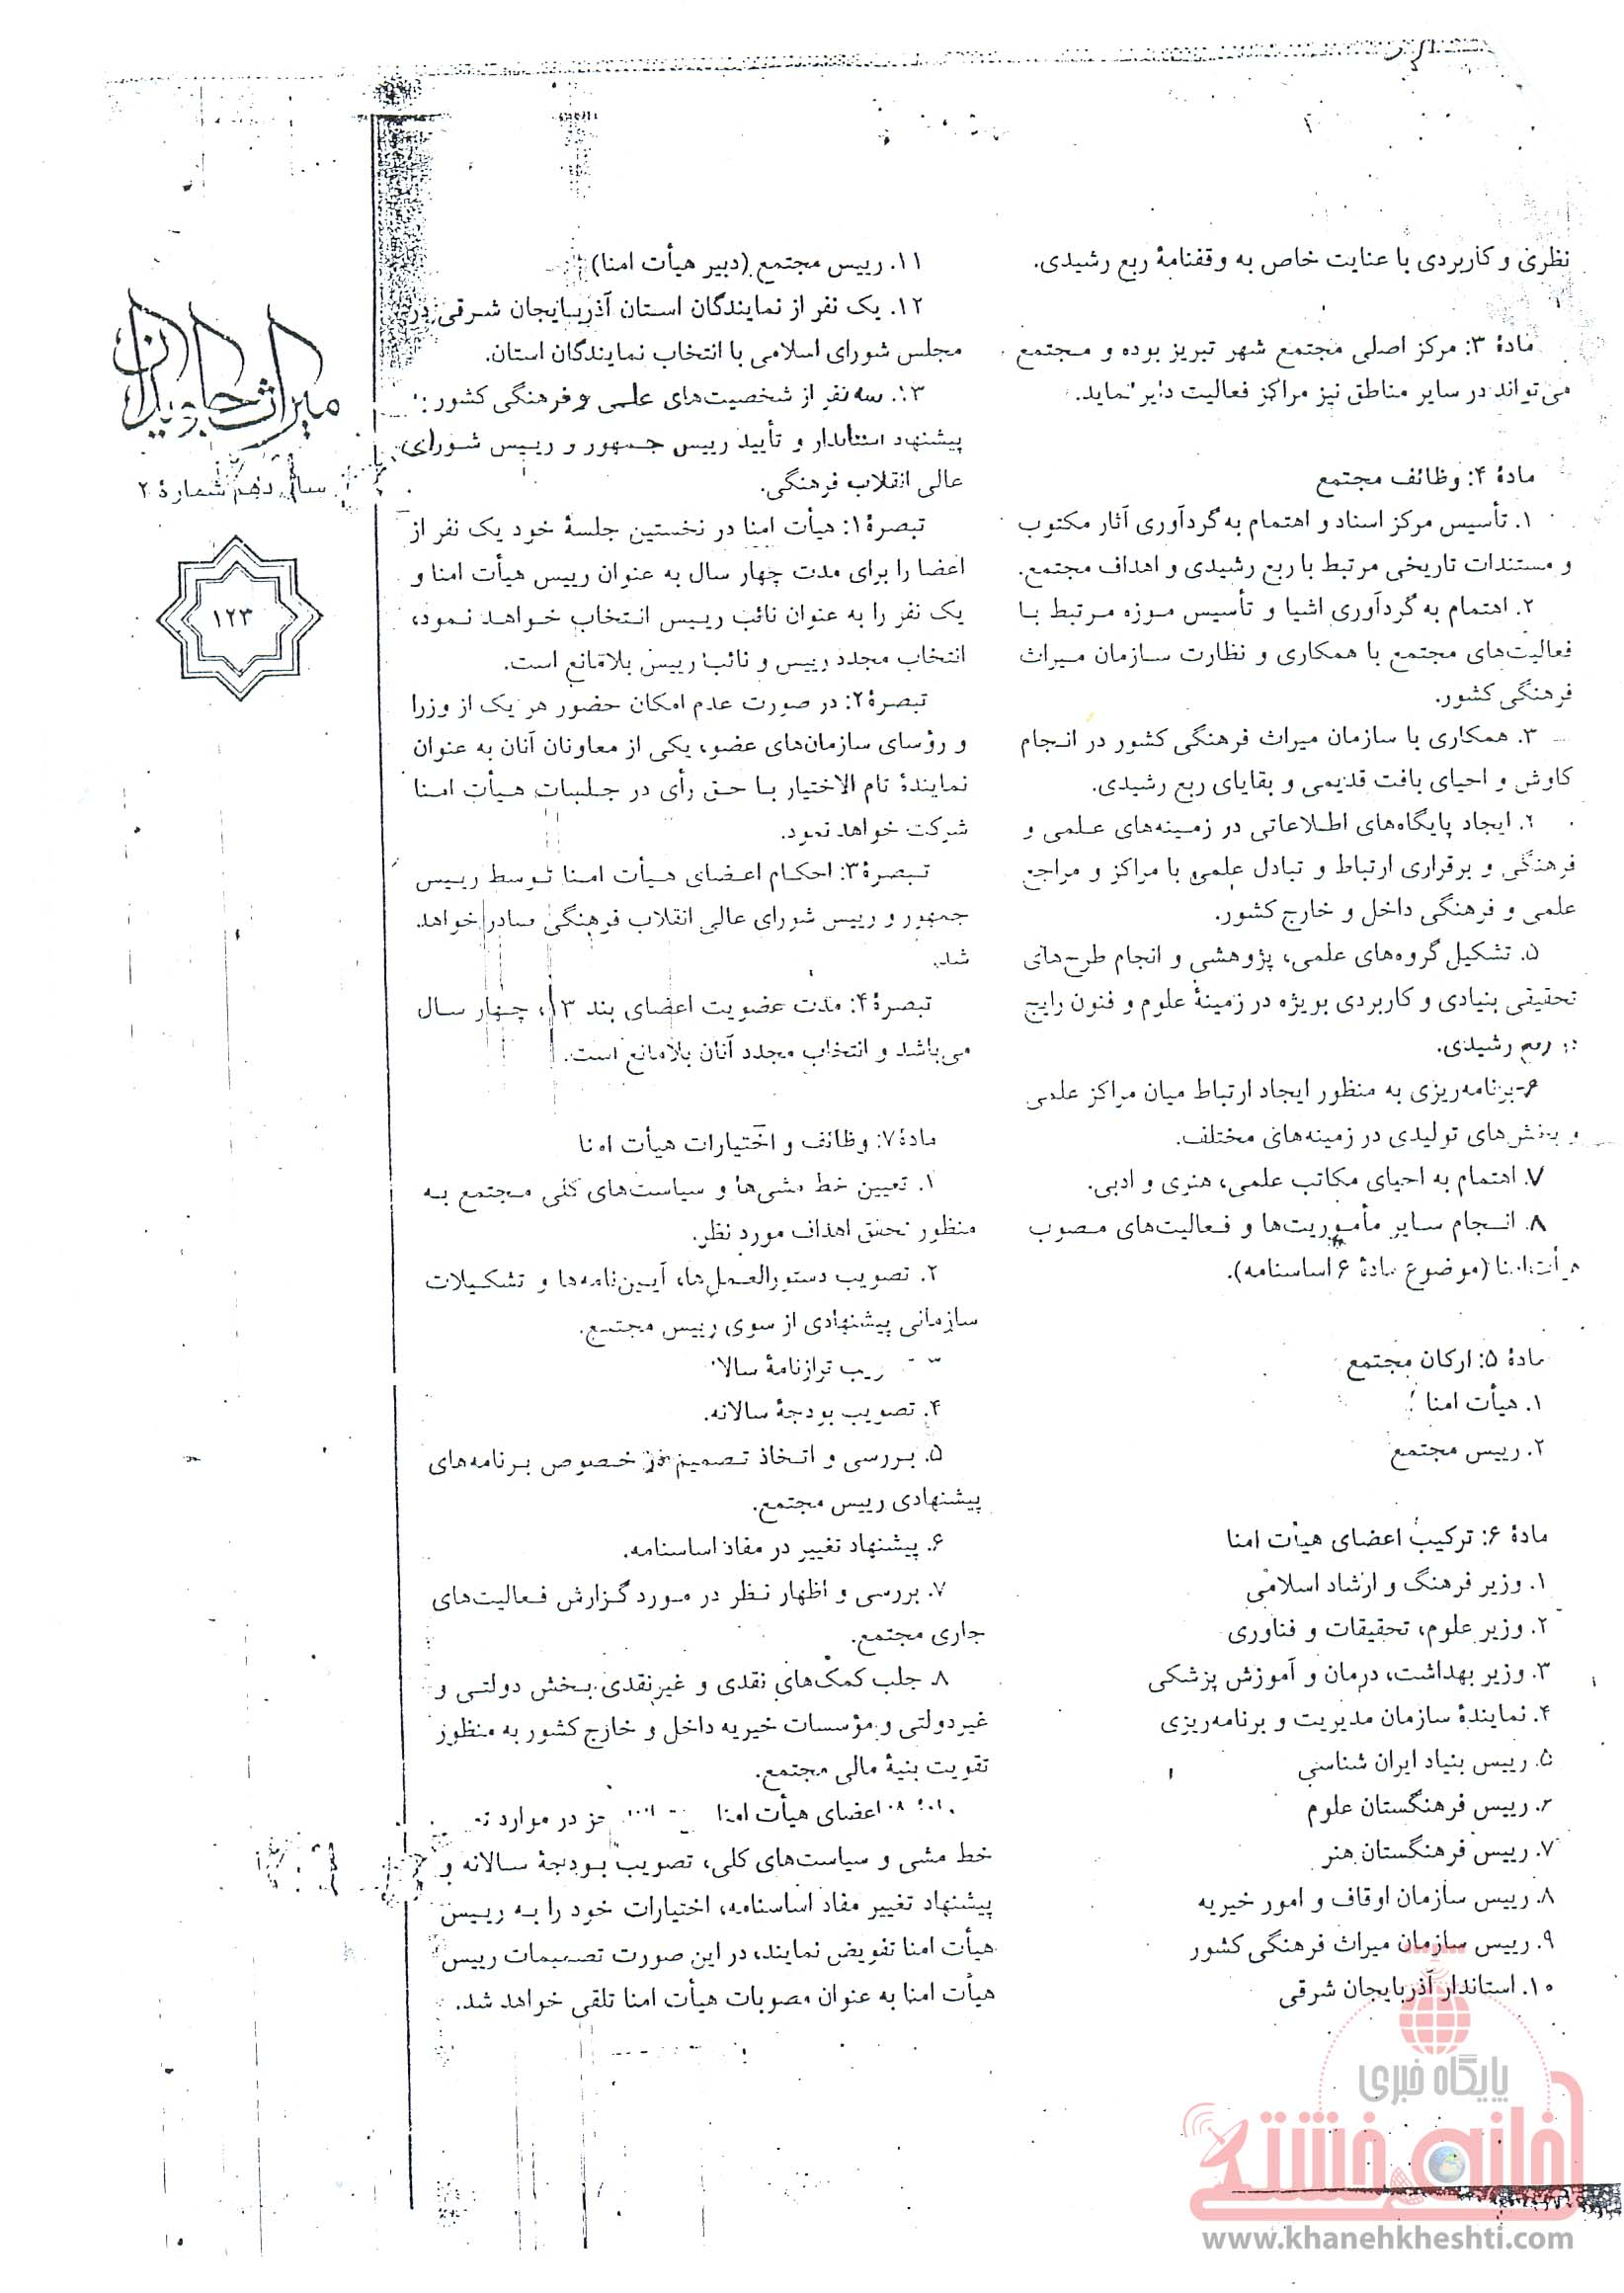 نظری و کاربردی با عنایت خاص به وقفنامهٔ ربع رشیدی.
مادهٔ ۳: مرکز اصلی مجتمع شهر تبریز بوده و مجتمع
می‌تواند در سایر مناطق نیز مراکز فعالیت دایر نماید.
مادهٔ ۴: وظائف مجتمع
۱. تأسیس مرکز اسناد و اهتمام به گردآوری آثار مکتوب
و مستندات تاریخی مرتبط با ربع رشیدی و اهداف مجتمع.
۲. اهتمام به گردآوری اشیا و تأسیس موزه مرتبط با
فعالیت‌های مجتمع با همکاری و نظارت سازمان میراث
فرهنگی کشور.
۳. همکاری با سازمان میراث فرهنگی کشور در انجام
کاوش و احیای بافت قدیمی و بقایای ربع رشیدی.
ایجاد پایگاه‌های اطلاعاتی در زمینه‌های علمی و
فرهنگی و برقراری ارتباط و تبادل علمی با مراکز و مراجع
علمی و فرهنگی داخل و خارج کشور.
۵. تشکیل گروه‌های علمی، پژوهشی و انجام طرح‌های
تحقیقی بنیادی و کاربردی بویژه در زمینهٔ علوم و فنون رایج
در ربع رشیدی.
۶-برنامه‌ریزی به منظور ایجاد ارتباط میان مراکز علمی
و بخش‌های تولیدی در زمینه‌های مختلف.
۷. اهتمام به احیای مکاتب علمی، هنری و ادبی.
۸. انجام سایر مأموریت‌ها و فعالیت‌های مصوب
هیأت امنا (موضوع مادهٔ ۶ اساسنامه).
مادهٔ ۵: ارکان مجتمع
۱. هیأت امنا
۲. رییس مجتمع
مادهٔ ۶: ترکیب اعضای هیأت امنا
۱. وزیر فرهنگ و ارشاد اسلامی
۲. وزیر علوم، تحقیقات و فناوری
۳. وزیر بهداشت، درمان و آموزش پزشکی
۴. نمایندهٔ سازمان مدیریت و برنامه‌ریزی
۵. رییس بنیاد ایران شناسی
رییس فرهنگستان علوم
۷. رییس فرهنگستان هنر
۸. رییس سازمان اوقاف و امور خیریه
۹. رییس سازمان میراث فرهنگی کشور
۱۰. استاندار آذربایجان شرقی
۱۱. رییس مجتمع (دبیر هیأت امنا)
۱۲. یک نفر از نمایندگان استان آذربایجان شرقی در
مجلس شورای اسلامی با انتخاب نمایندگان استان.
۱۳. سه نفر از شخصیت‌های علمی و فرهنگی کشور به
پیشنهاد استاندار و تأیید رییس جمهور و رییس شورای
عالی انقلاب فرهنگی.
تبصرهٔ ۱: هیأت امنا در نخستین جلسهٔ خود یک نفر از
اعضا را برای مدت چهار سال به عنوان رییس هیأت امنا و
یک نفر را به عنوان نائب رییس انتخاب خواهد نمود،
انتخاب مجدد رییس و نائب رییس بلامانع است.
تبصرهٔ ۲: در صورت عدم امکان حضور هر یک از وزرا
و رؤسای سازمان‌های عضو، یکی از معاونان آنان به عنوان
نمایندهٔ تام الاختیار با حق رأی در جلسات هیأت امنا
شرکت خواهد نمود.
تبصرهٔ ۳: احکام اعضای هیأت امنا توسط رییس
جمهور و رییس شورای عالی انقلاب فرهنگی صادر خواهد
شد.
تبصرهٔ ۴: مدت عضویت اعضای بند ۱۳، چهار سال
می‌باشد و انتخاب مجدد آنان بلامانع است.
مادهٔ ۷: وظائف و اختیارات هیأت امنا
۱. تعیین خط مشی‌ها و سیاست‌های کلی مجتمع به
منظور تحقق اهداف مورد نظر.
۲. تصویب دستورالعمل‌ها، آیین‌نامه‌ها و تشکیلات
سازمانی پیشنهادی از سوی رییس مجتمع.
ترازنامهٔ
۴. تصویب بودجهٔ سالانه.
۵. بررسی و اتخاذ تصمیم در خصوص برنامه‌های
پیشنهادی رییس مجتمع.
۶. پیشنهاد تغییر در مفاد اساسنامه.
۷. بررسی و اظهار نظر در مورد گزارش فعالیت‌های
جاری مجتمع.
۸. جلب کمک‌های نقدی و غیرنقدی بخش دولتی و
غیردولتی و مؤسسات خیریه داخل و خارج کشور به منظور
تقویت بنیهٔ مالی مجتمع.
اعضای هیأت امنا در موارد
خط مشی و سیاست‌های کلی، تصویب بودجهٔ سالانه و
پیشنهاد تغییر مفاد اساسنامه، اختیارات خود را به رییس
هیأت امنا تفویض نمایند، در این صورت تصمیمات رییس
هیأت امنا به عنوان مصوبات هیأت امنا تلقی خواهد شد.
میراث جاویدان
سال دهم شمارهٔ ۲
۱۲۳
پایگاه خبری
خانه خشتی
www.khanehkheshti.com